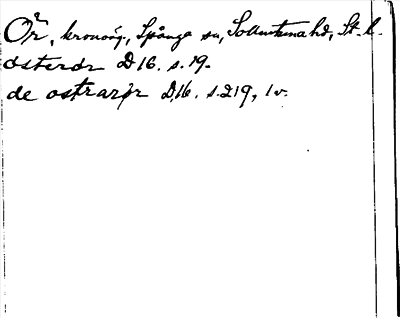 Ör, kronoäng, Spånga sn, Sollentuna hd, St. l.
österör D 16. s. 19.
de ostrarör D 16. s. 219, 1 v.